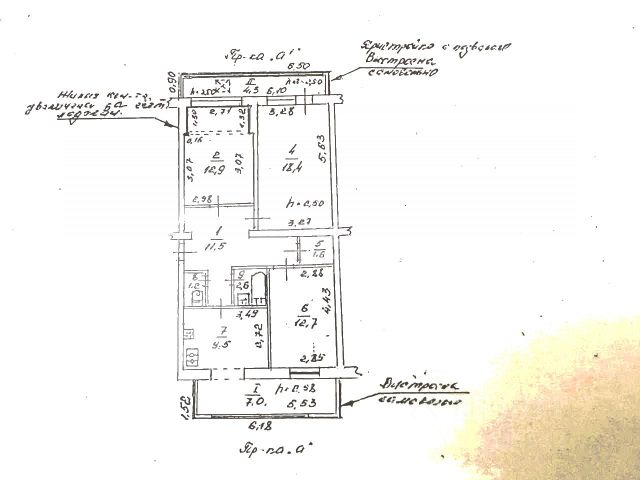 Пр-ка „а'"
6.50
Пристройка с подвалом
Выстроена
самовольно
0.90
II
4.3
6.10
h=2.50
h=2.50
Жилых
2.71
3.28
1.32
0.16
2
12.9
3.07
3.07
4
18.4
5.63
2.98
h=2.50
3.27
1
11.5
5
1.6
8
1.2
9
2.6
2.88
6
12.7
4.43
3.49
7
9.5
2.72
2.85
I
7.0
h=2.58
5.53
1.52
6.18
Выстроена
самовольно
Пр-ка „а"